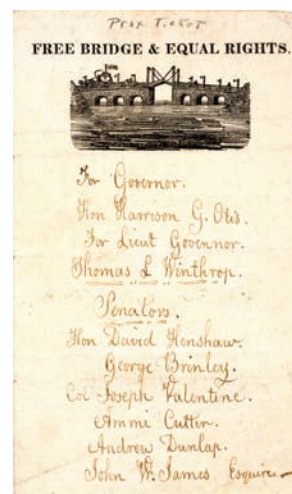 Prox Ticket
FREE BRIDGE & EQUAL RIGHTS.
For Governor.
Hon Harrison G. Otis.
For Lieut Govennor.
Thomas L Winthrop.
Senators.
Hon David Henshaw.
George Brinley.
Col Joseph Valentine.
Ammi Cutter.
Andrew Dunlap.
John W. James Esquires